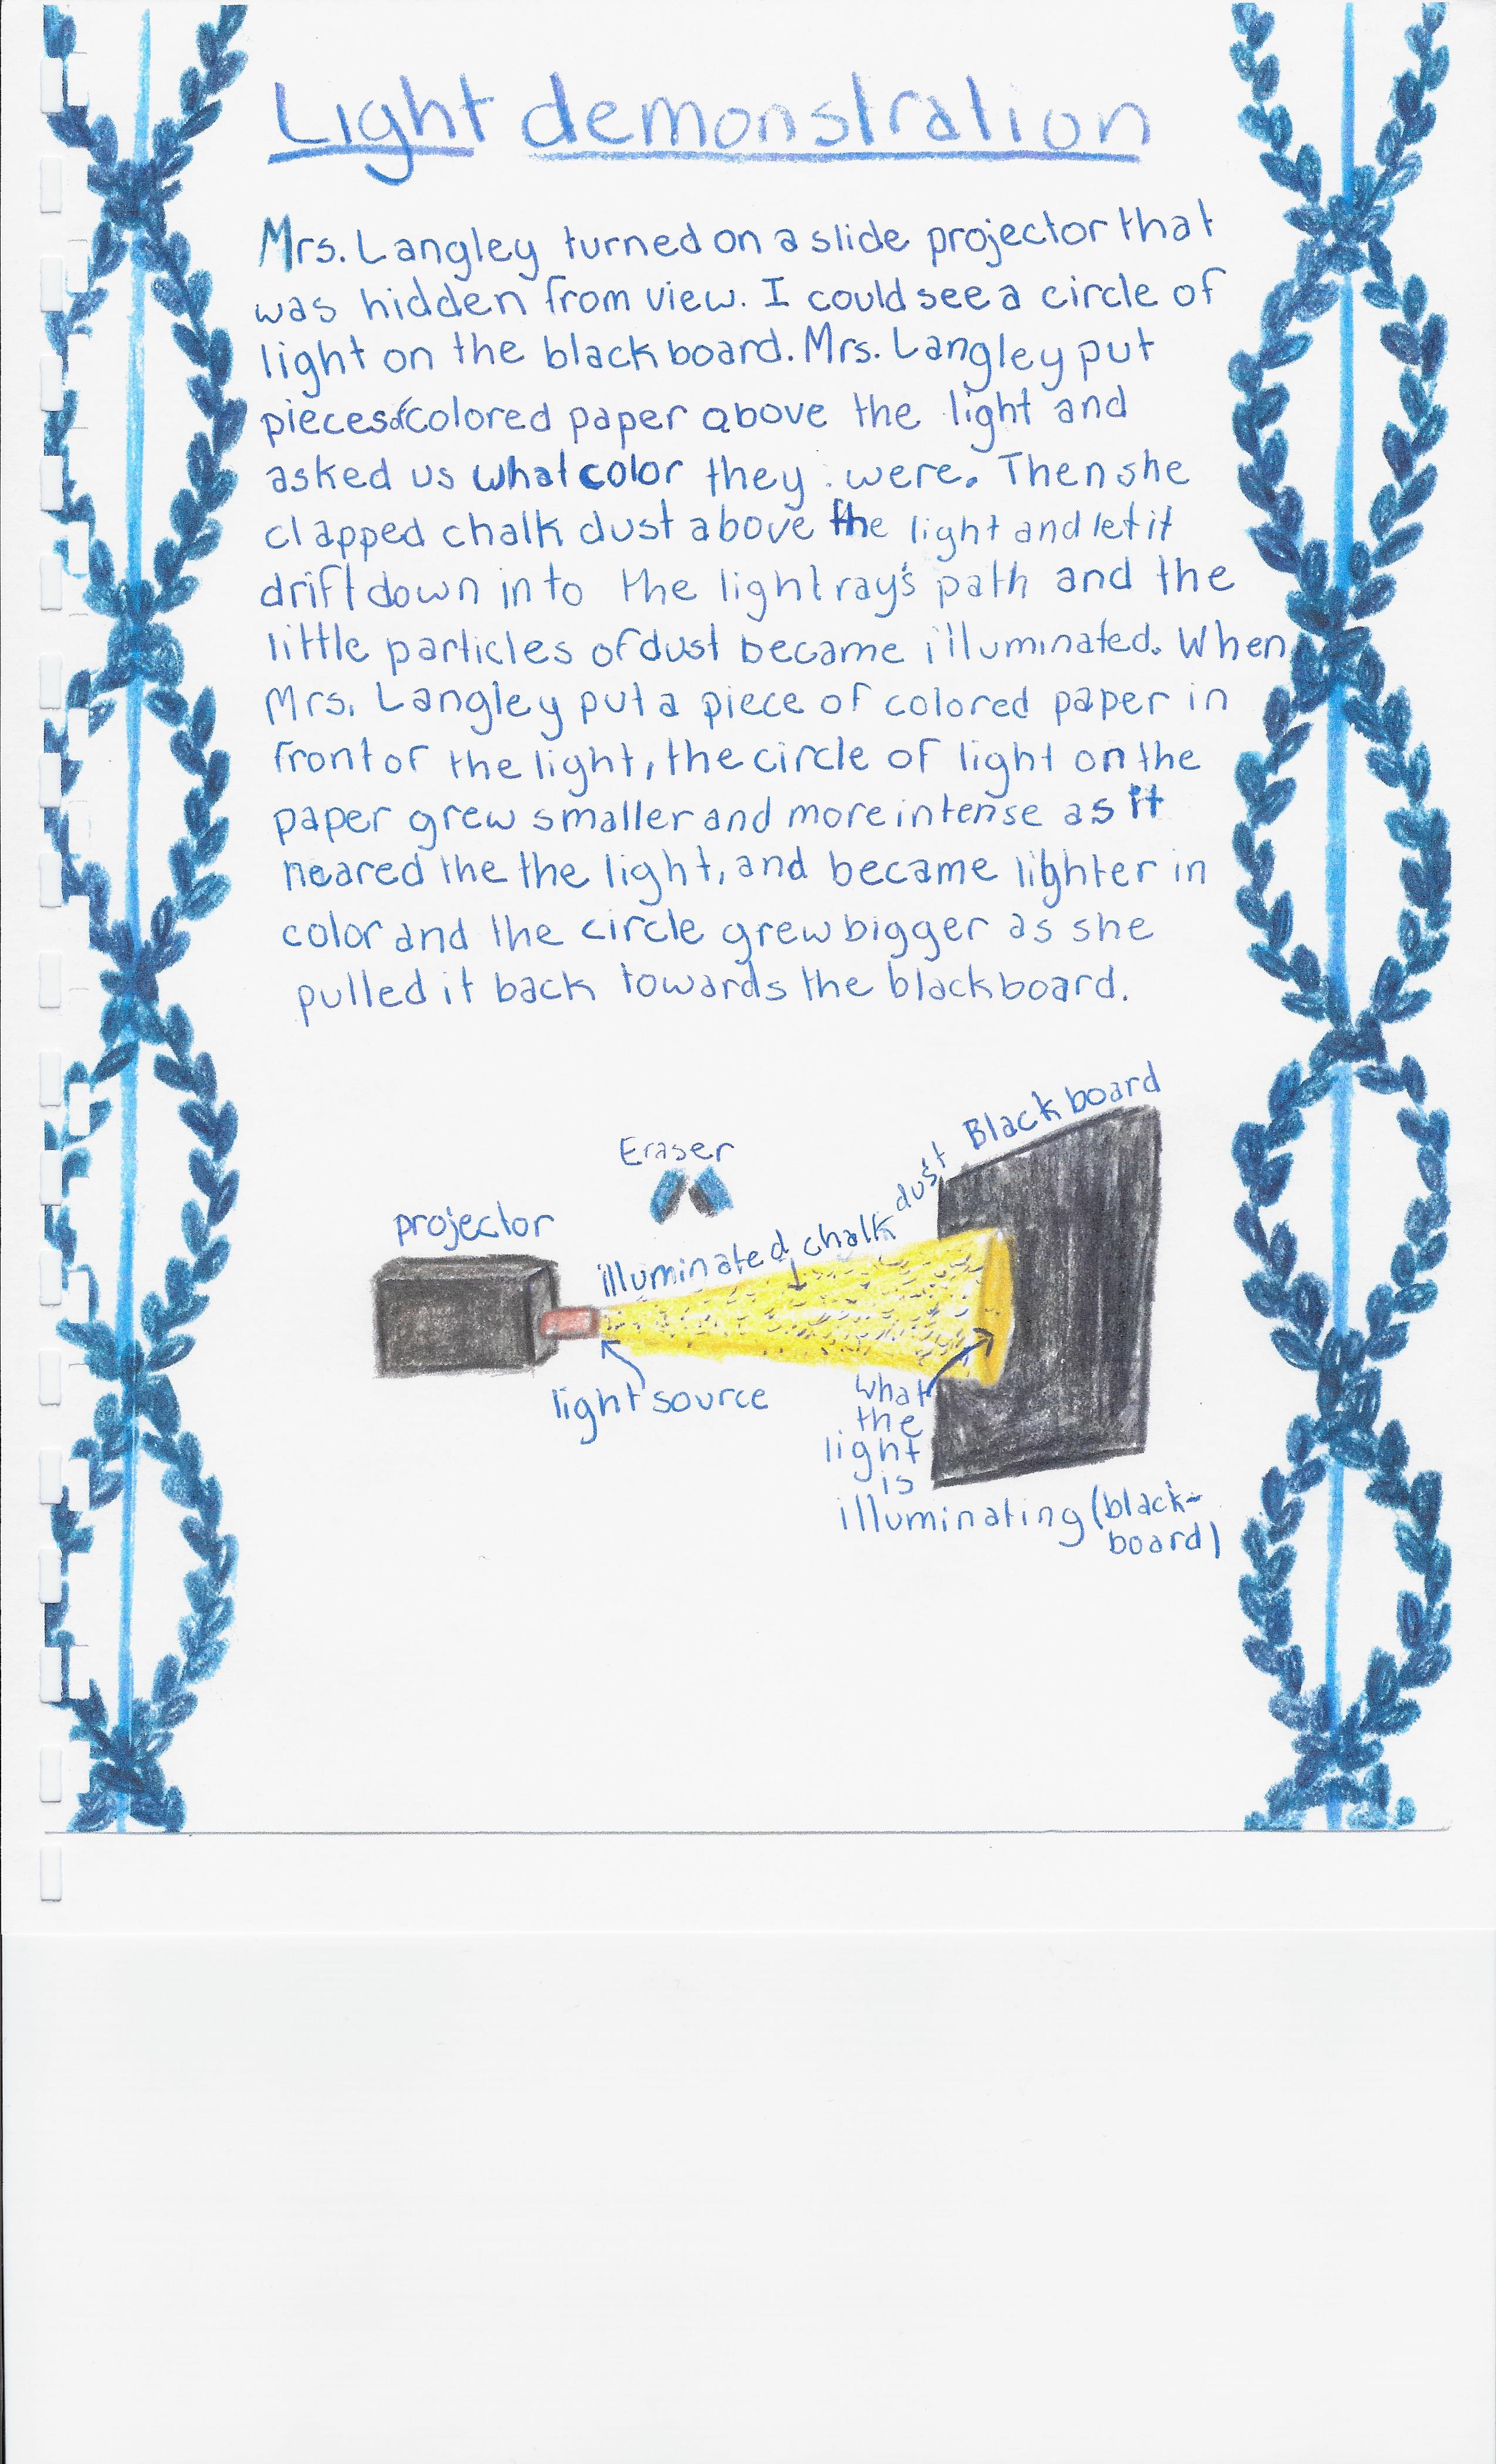 Light demonstration
Mrs. Langley turned on a slide projector that
was hidden from view. I could see a circle of
light on the blackboard. Mrs. Langley put
pieces of colored paper above the light and
asked us what color they were. Then she
clapped chalk dust above the light and let it
drift down into the light ray's path and the
little particles of dust became illuminated. When
Mrs. Langley put a piece of colored paper in
front of the light, the circle of light on the
paper grew smaller and more intense as it
neared the the light, and became lighter in
color and the circle grew bigger as she
pulled it back towards the blackboard.
Blackboard
Eraser
projector
illuminated chalk dust
light source
what
the
light
is
illuminating (black-
board)